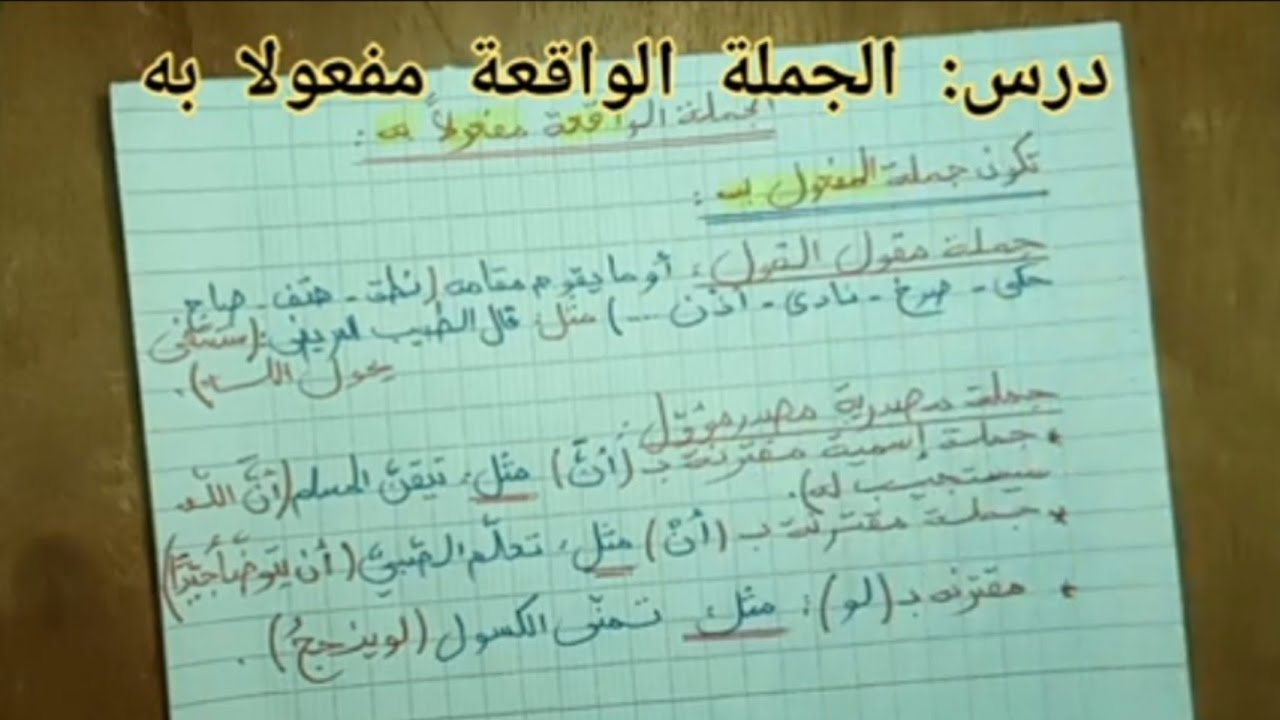 درس: الجملة الواقعة مفعولا به
الجملة الواقعة مفعولاً به :
تكون جملة المفعول به :
جملة مقول القول: أو ما يقوم مقامه (نطق - هتف - صاح
حكى - صرخ - نادى - أذن ....) مثل: قال الطبيب للمريض: (ستشفى
بحول الله).
جملة مصدرية مصدر مؤوّل :
* جملة إسمية مقترنة بـ (أنّ) مثل: تيقن المسلم (أنّ الله
سيستجيب له).
* جملة مقترنة بـ (أنْ) مثل: تعلّم الصّبيّ (أن يتوضأ جيّدًا)
* مقترنه بـ (لو): مثل: تمنّى الكسول (لو ينجحُ) .